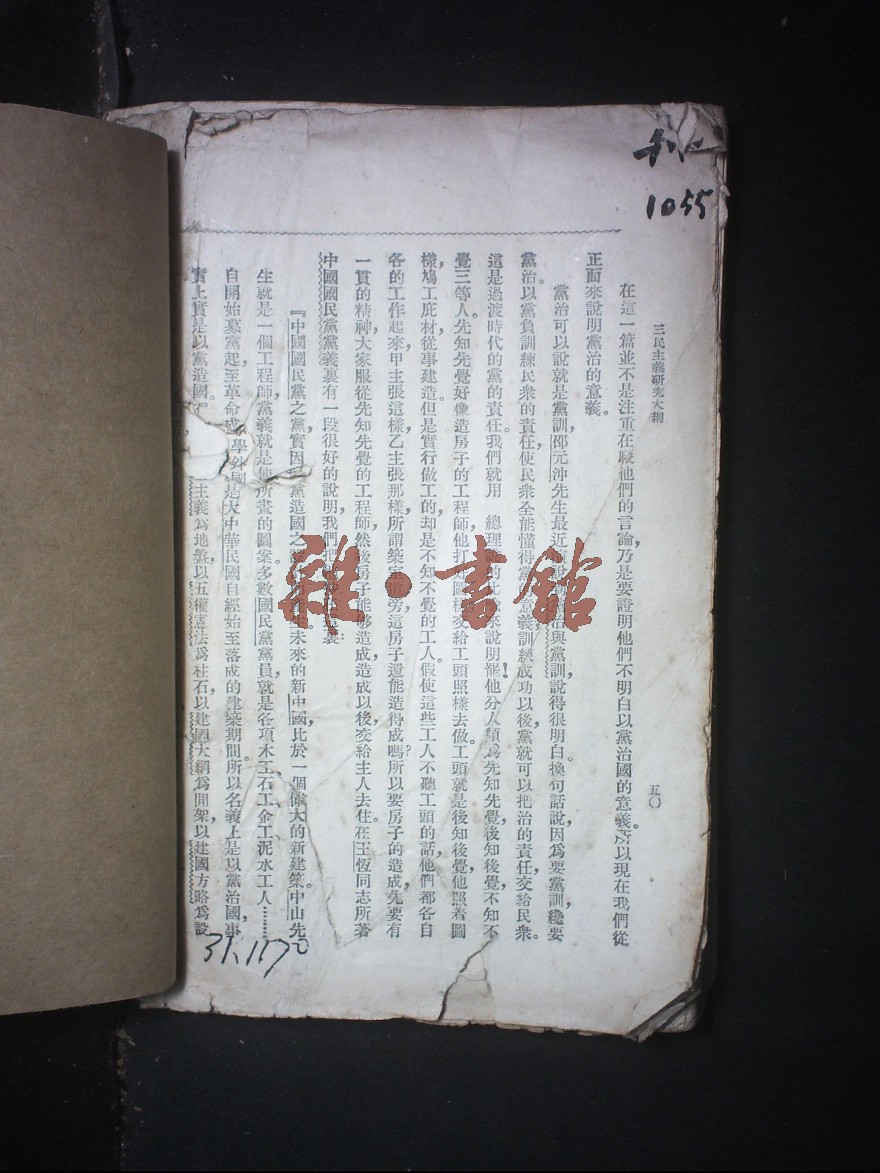 1055
三民主義研究大綱
五〇
在這一篇並不是注重在駁他們的言論，乃是要證明他們不明白以黨治國的意義，所以現在我們從
正面來說明黨治的意義。
黨治可以說就是黨訓，邵元沖先生最近 治與黨訓說得很明白。換句話說，因爲要黨訓，纔要
黨治。以黨負訓練民衆的責任，使民衆全能懂得黨 意義，訓練成功以後，黨就可以把治的責任，交給民衆。
這是過渡時代的黨的責任。我們就用 總理 的比 來說明罷！他分人類爲先知先覺，後知後覺，不知不
覺三等人。先知先覺，好像造房子的工程師，他打好圖樣，交給工頭照樣去做。工頭就是後知後覺，他照着圖
樣，鳩工庀材，從事建造。但是實行做工的，却是不知不覺的工人。假使這些工人，不聽工頭的話，他們都各自
各的工作起來，甲主張這樣，乙主張那樣，所謂築室道旁，這房子還能造得成嗎？所以要房子的造成，先要有
一貫的精神，大家服從先知先覺的工程師，然後房子能够造成，造成以後，交給主人去住。在王恆同志所著
中國國民黨黨義裏，有一段很好的說明，我們把
『中國國民黨之黨，實因 黨造國之 未來的新中國，比於一個偉大的新建築。中山先
生就是一個工程師，黨義就是他所畫的圖案，多數國民黨黨員，就是各項木工石工金工泥水工人………
自開始募黨起，至革命成 是大中華民國自經始至落成的建築期間。所以名義上是以黨治國，事
實上實是以黨造國。 主義爲地盤，以五權憲法爲柱石，以建國大綱爲間架，以建國方略爲設
學外國
雜·書館
31.1170